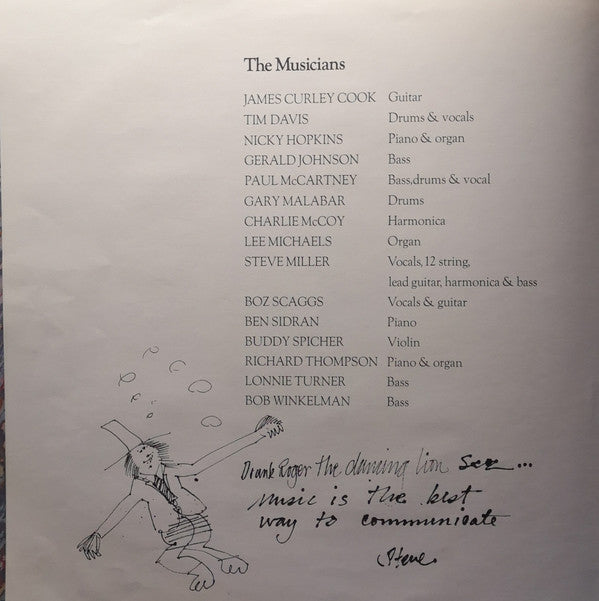 The Musicians
JAMES CURLEY COOK Guitar
TIM DAVIS Drums & vocals
NICKY HOPKINS Piano & organ
GERALD JOHNSON Bass
PAUL McCARTNEY Bass,drums & vocal
GARY MALABAR Drums
CHARLIE McCOY Harmonica
LEE MICHAELS Organ
STEVE MILLER Vocals, 12 string,
lead guitar, harmonica & bass
BOZ SCAGGS Vocals & guitar
BEN SIDRAN Piano
BUDDY SPICHER Violin
RICHARD THOMPSON Piano & organ
LONNIE TURNER Bass
BOB WINKELMAN Bass
Roger the dancing lion Sez...
Music is the best
way to communicate
Steve.